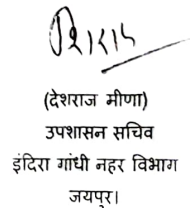 (देशराज मीणा)
उपशासन सचिव
इंदिरा गांधी नहर विभाग
जयपुर।